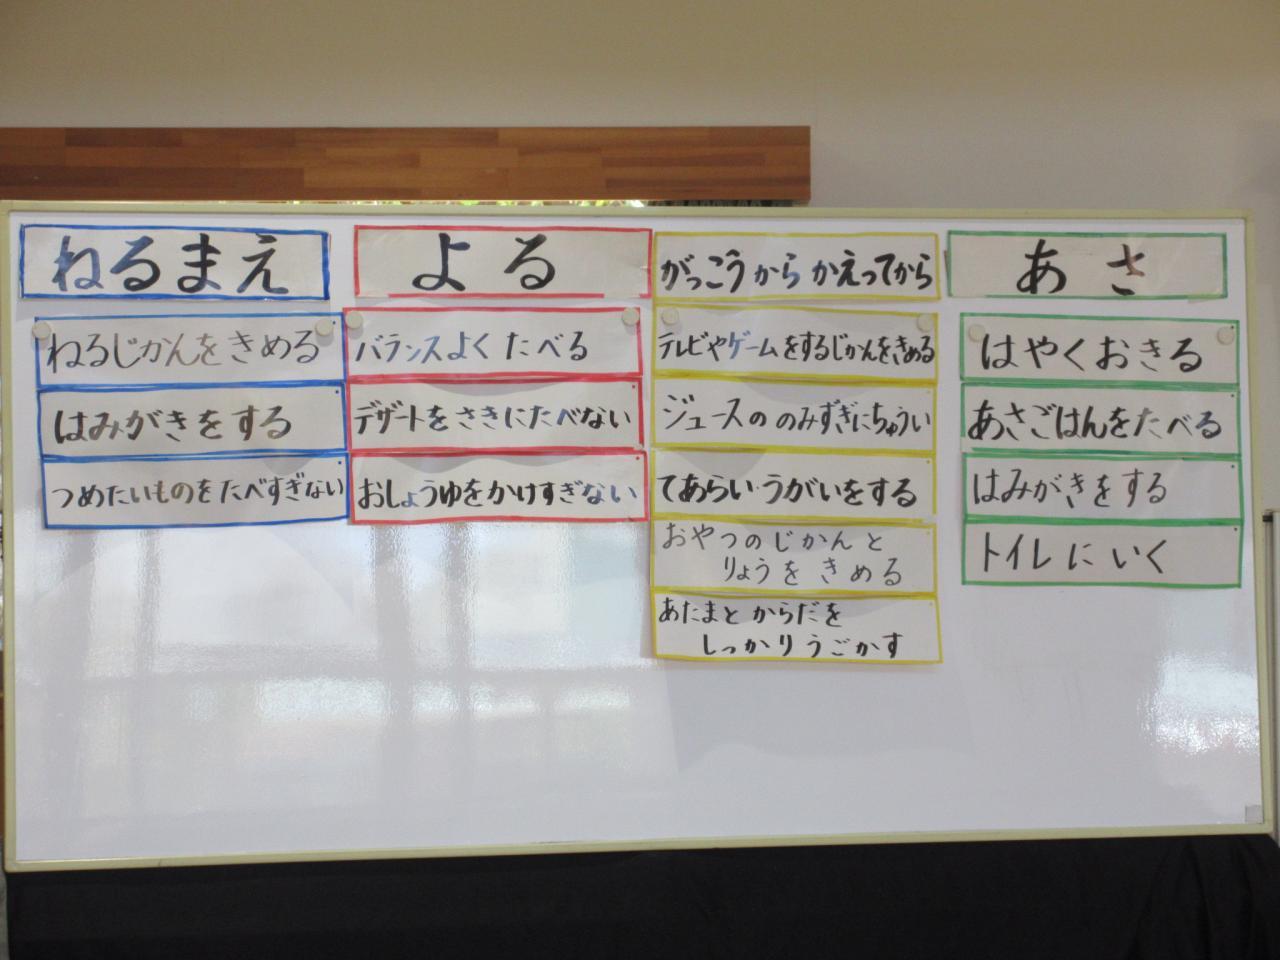 ねるまえ
ねるじかんをきめる
はみがきをする
つめたいものをたべすぎない
よる
バランスよくたべる
デザートをさきにたべない
おしょうゆをかけすぎない
がっこうからかえってから
テレビやゲームをするじかんをきめる
ジュースののみずぎにちゅうい
てあらい・うがいをする
おやつのじかんと
りょうをきめる
あたまとからだを
しっかりうごかす
あさ
はやくおきる
あさごはんをたべる
はみがきをする
トイレにいく